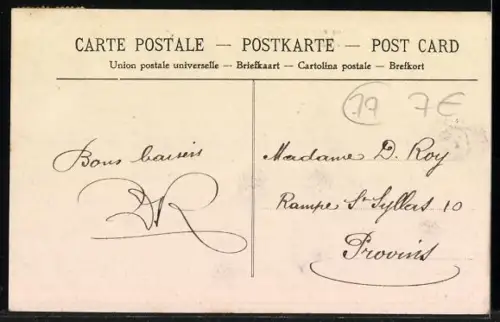 CARTE POSTALE — POSTKARTE — POST CARD
Union postale universelle — Briefkaart — Cartolina postale — Brefkort
19 7€
Bons baisers
DR
Madame D. Roy
Rampe St Syllas 10
Provins